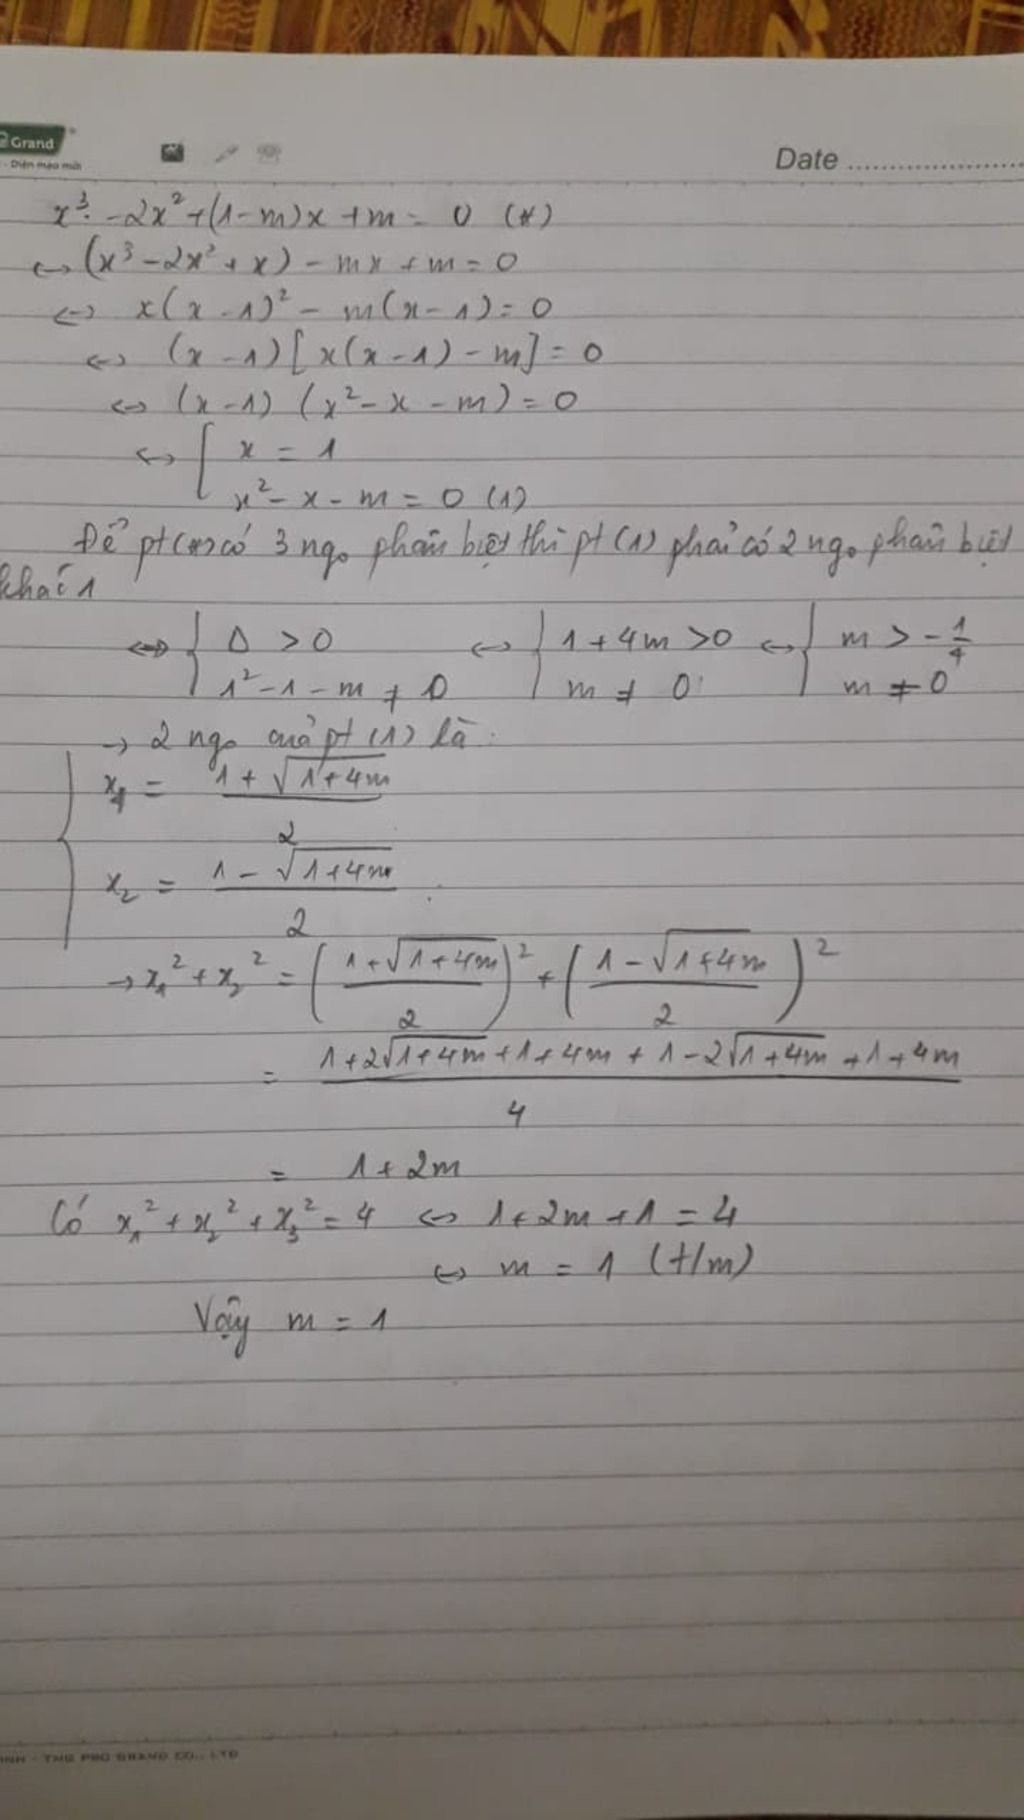 Grand
- Diện mạo mới
Date
x³ - 2x² + (1-m)x + m = 0 (*)
↔ (x³ - 2x² + x) - mx + m = 0
↔ x(x-1)² - m(x-1) = 0
↔ (x-1)[x(x-1) - m] = 0
↔ (x-1) (x² - x - m) = 0
↔ [ x = 1
x² - x - m = 0 (1)
Để pt (*) có 3 ngo phân biệt thì pt (1) phải có 2 ngo phân biệt
khác 1
⇔ { Δ > 0 ↔ { 1 + 4m > 0 ↔ { m > -1/4
1² - 1 - m ≠ 0 m ≠ 0 m ≠ 0
→ 2 ngo của pt (1) là:
{ x₁ = (1 + √(1+4m))/2
x₂ = (1 - √(1+4m))/2
→ x₁² + x₂² = ((1+√(1+4m))/2)² + ((1-√(1+4m))/2)²
= (1+2√(1+4m) + 1 + 4m + 1 - 2√(1+4m) + 1 + 4m)/4
= 1 + 2m
Có x₁² + x₂² + x₃² = 4 ↔ 1 + 2m + 1 = 4
↔ m = 1 (t/m)
Vậy m = 1
PRO GRAND CO., LTD